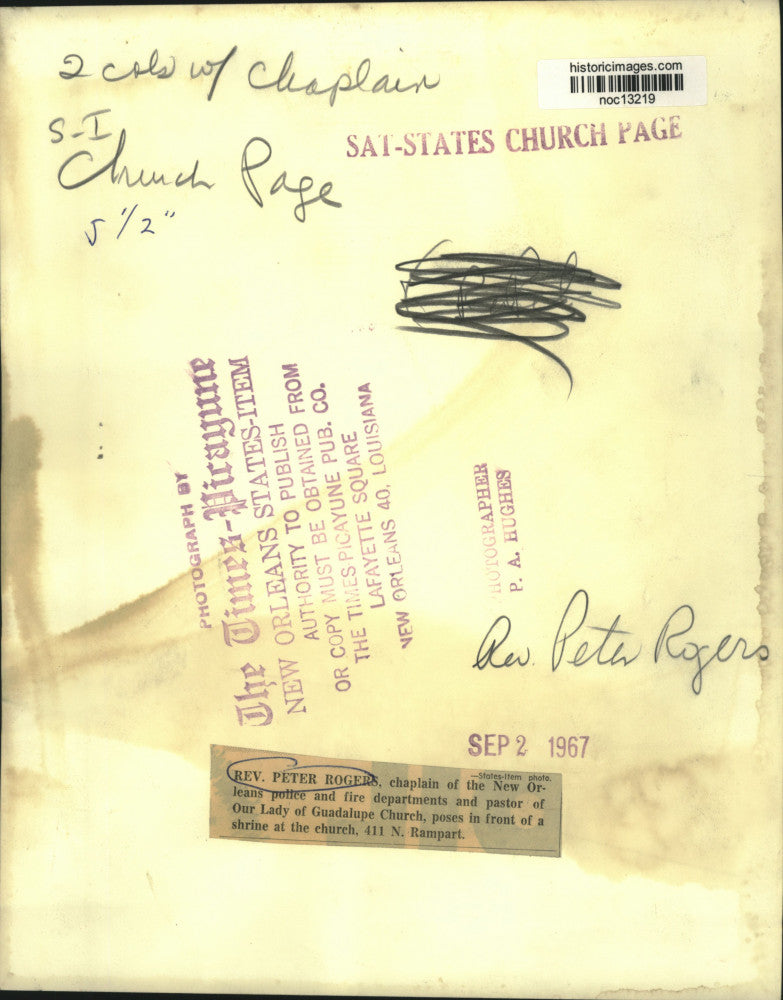 historicimages.com
noc13219
2 cols w/ Chaplain
S-I
Church Page
5 1/2"
SAT-STATES CHURCH PAGE
PHOTOGRAPH BY
The Times-Picayune
NEW ORLEANS STATES-ITEM
AUTHORITY TO PUBLISH
OR COPY MUST BE OBTAINED FROM
THE TIMES PICAYUNE PUB. CO.
LAFAYETTE SQUARE
NEW ORLEANS 40, LOUISIANA
PHOTOGRAPHER
P. A. HUGHES
Rev. Peter Rogers
SEP 2 1967
—States-Item photo.
REV. PETER ROGERS, chaplain of the New Or-
leans police and fire departments and pastor of
Our Lady of Guadalupe Church, poses in front of a
shrine at the church, 411 N. Rampart.